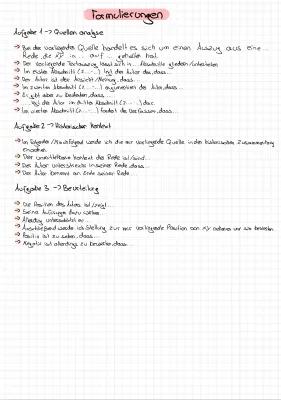 Formulierungen
Aufgabe 1 -> Quellenanalyse
-> Bei der vorliegenden Quelle handelt es sich um einen Auszug aus eine...
Rede, die XP in ... auf ... gehalten hat.
-> Der vorliegende Textauszug lässt sich in ... Abschnitte gliedern/unterteilen
-> Im ersten Abschnitt (Z. ...-...) legt der Autor dar, dass...
-> Der Autor ist der Ansicht/Meinung, dass...
-> Im zweiten Abschnitt (Z. ...-...) argumentiert der Autor, dass...
-> Er gibt aber zu bedenken, dass...
-> ... legt der Autor im dritten Abschnitt (Z. ...-...) dar
-> Im vierten Abschnitt (Z. ...-...) fordert der Verfasser, dass...
Aufgabe 2 -> Historischer Kontext
-> Im Folgenden/Nachfolgend werde ich die mir vorliegende Quelle in den historischen Zusammenhang
einordnen.
-> Der unmittelbare Kontext der Rede ist/sind...
-> Der Autor unterstreicht in seiner Rede, dass...
-> Der Autor benennt am Ende seiner Rede...
Aufgabe 3 -> Beurteilung
-> Die Position des Autors ist/zeigt...
-> Seine Aussage dazu
-> Allerdings unterschätzt er...
-> Anschließend werde ich Stellung zur mir vorliegende Position von XY nehmen und sie beurteilen.
-> Positiv ist zu sehen, dass...
-> Negativ ist allerdings zu beurteilen, dass...